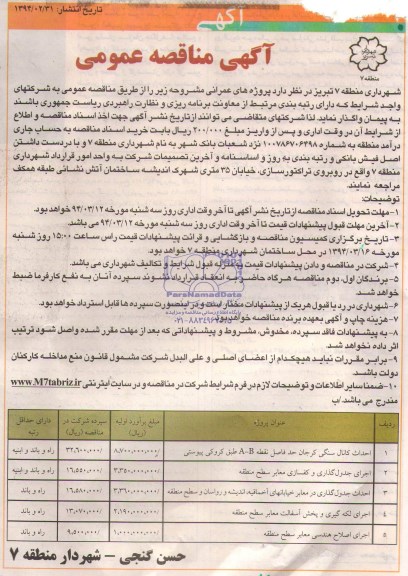 تاریخ انتشار: ۱۳۹۴/۰۲/۳۱
آگهی
آگهی مناقصه عمومی
منطقه ۷
شهرداری منطقه ۷ تبریز در نظر دارد پروژه های عمرانی مشروحه زیر را از طریق مناقصه عمومی به شرکتهای
واجد شرایط که دارای رتبه بندی مرتبط از معاونت برنامه ریزی و نظارت راهبردی ریاست جمهوری باشند
به پیمان واگذار نماید. لذا شرکتهای متقاضی می توانند از تاریخ نشر آگهی جهت اخذ اسناد مناقصه و اطلاع
از شرایط آن در وقت اداری و پس از واریز مبلغ ۲۰۰/۰۰۰ ریال بابت خرید اسناد مناقصه به حساب جاری
درآمد منطقه به شماره ۱۰۰۷۸۶۷۰۶۴۹۸ نزد شعبات بانک شهر به نام شهرداری منطقه ۷ و با در دست داشتن
اصل فیش بانکی و رتبه بندی به روز و اساسنامه و آخرین تصمیمات شرکت به واحد امور قرارداد شهرداری
منطقه ۷ واقع در روبروی تراکتورسازی، خیابان ۳۵ متری شهرک اندیشه ساختمان آتش نشانی طبقه همکف
مراجعه نمایند.
توضیحات:
۱-مهلت تحویل اسناد مناقصه از تاریخ نشر آگهی تا آخر وقت اداری روز سه شنبه مورخه ۹۴/۰۳/۱۲ خواهد بود.
۲-آخرین مهلت قبول پیشنهادات قیمت تا آخر وقت اداری روز سه شنبه مورخه ۹۴/۰۳/۱۲ می باشد.
۳-تاریخ برگزاری کمیسیون مناقصه و بازگشایی و قرائت پیشنهادات قیمت راس ساعت ۱۵:۰۰ روز شنبه
مورخه ۱۳۹۴/۰۳/۱۶ در محل ساختمان شهرداری منطقه ۷ خواهد بود.
۴-شرکت در مناقصه و دادن پیشنهادات قیمت به منزله قبول شرایط و تکالیف شهرداری می باشد.
۵-برندگان اول، دوم مناقصه هرگاه حاضر به انعقاد قرارداد نشوند سپرده آنان به نفع کارفرما ضبط
خواهد شد.
۶-شهرداری در رد یا قبول هریک از پیشنهادات مختار است و در اینصورت سپرده ها قابل استرداد خواهد بود.
۷-هزینه چاپ و آگهی بعهده برنده مناقصه خواهد بود.
۸-به پیشنهادات فاقد سپرده، مخدوش، مشروط و پیشنهاداتی که بعد از مهلت مقرر شده واصل شود ترتیب
اثر داده نخواهد شد.
۹-برابر مقررات نباید هیچکدام از اعضای اصلی و علی البدل شرکت مشمول قانون منع مداخله کارکنان
دولت باشند.
۱۰-ضمنا سایر اطلاعات و توضیحات لازم در فرم شرایط شرکت در مناقصه و در سایت اینترنتی www.M7tabriz.ir
مندرج می باشد./ب
ردیف عنوان پروژه مبلغ برآورد اولیه (ریال) سپرده شرکت در مناقصه (ریال) دارای حداقل رتبه
۱ احداث کانال سنگی کرجان حد فاصل نقطه A-B طبق کروکی پیوستی ۸,۷۰۰,۰۰۰,۰۰۰/ ۳۲,۶۰۰,۰۰۰/ راه و باند و ابنیه
۲ اجرای جدول گذاری و کفسازی معابر سطح منطقه ۳,۳۵۰,۰۰۰,۰۰۰/ ۱۶,۵۵۰,۰۰۰/ راه و باند و ابنیه
۳ احداث جدول گذاری در معابر خیابانهای احصائیه، اندیشه و رواسان و سطح منطقه ۳,۳۶۰,۰۰۰,۰۰۰/ ۱۶,۵۸۰,۰۰۰/ راه و باند
۴ اجرای لکه گیری و پخش آسفالت معابر سطح منطقه ۲,۱۹۰,۰۰۰,۰۰۰/ ۱۳,۰۷۰,۰۰۰/ راه و باند
۵ اجرای اصلاح هندسی معابر سطح منطقه ۱,۰۰۰,۰۰۰,۰۰۰/ ۹,۵۰۰,۰۰۰/ راه و باند
حسن گنجی - شهردار منطقه ۷
ParsNamadData
۰۲۱-۸۸۳۴۹۶